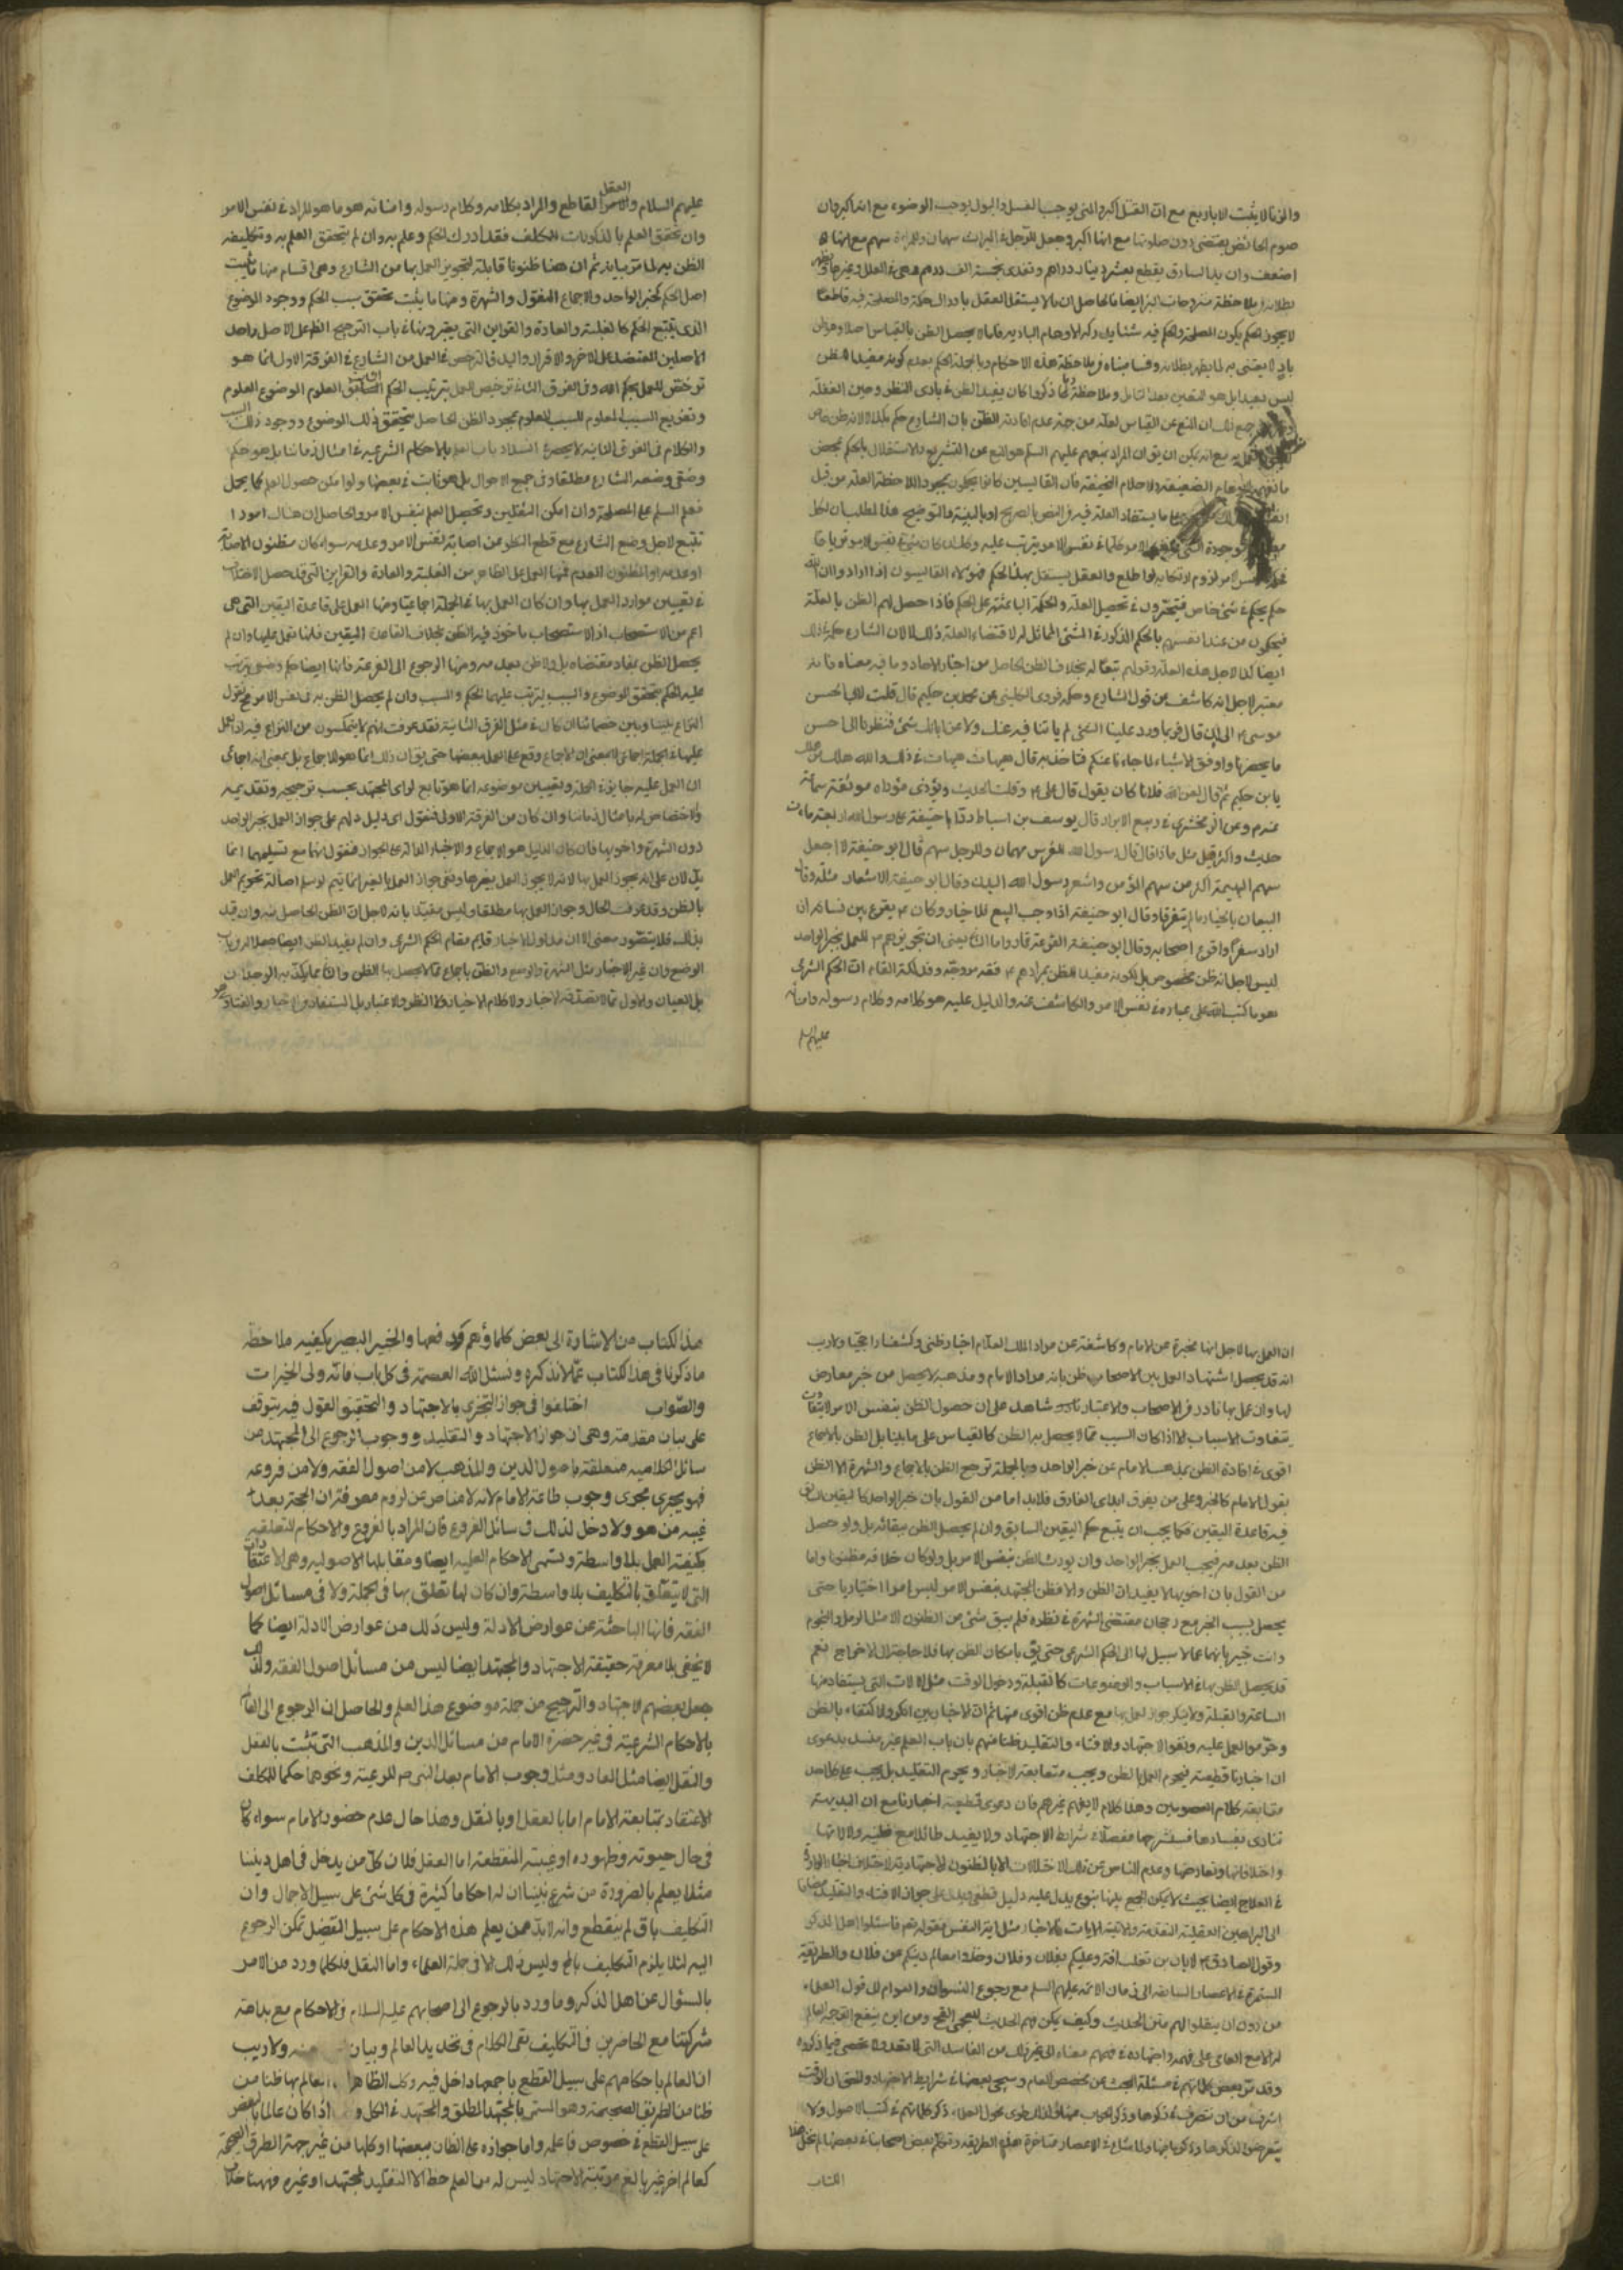 والزنا لا يثبت الا باربع مع ان القتل اكبر والمني يوجب الغسل والبول يوجب الوضوء مع انه اكبر وان
صوم الحائض يقتضى دون صلوتها مع انها اكبر وجعل للرجل في الميراث سهمان وللمراة سهم مع انها
اضعف وان يد السارق يقطع بعشرة دراهم وتفدى بخمسة الف درهم
لا يجوز الحكم بكون المصلحة والحكم فيه
ليس ببعيد بل هو المتعين بعد التامل وملاحظة ما ذكروا كان يفيد الظن في بادى النظر وحين الغفلة
ان المنع عن القياس لعله من جهة عدم افادته الظن بان الشارع حكم بذلك لا لانه ظن خاص
مع انه يمكن ان يق ان المراد بمنعهم عليهم السلم هو المنع عن التشريع والاستقلال بالحكم بمحض
الضعيفة والاحلام الخفيفة فان القايسين كانوا يحكمون بمجرد الملاحظة العلة من قبل
ما يستفاد العلة فيه في النص بالصريح او بالبينة والتوضيح هذا المطلب ان لكل
لو اطلع والعقل يستقل بهذا الحكم فهؤلاء القايسون اذا ارادوا ان الله
حكم بحكم في شئ خاص فيتحرون في تحصيل العلة والحكمة الباعثة على الحكم فاذا حصل لهم الظن بالعلة
فيحكمون من عند انفسهم بالحكم المذكور في الشئ المماثل له لاقتضاء العلة ذلك لا لان الشارع حكم في ذلك
ايضا كذا لاجل هذه العلة وقولهم تبعا له بخلاف الظن الحاصل من اخبار الاحاد وما في معناه فانه
معتبر لاجل انه كاشف عن قول الشارع وحكمه فروى الكليني عن محمد بن حكيم قال قلت لابي الحسن
موسى ع الى ان قال فربما ورد علينا الشئ لم ياتنا فيه عنك ولا عن ابائك شئ فنظرنا الى احسن
ما يحضرنا واوفق الاشياء لما جاءنا عنكم فناخذ به قال هيهات هيهات في ذلك والله هلك من هلك
يا بن حكيم ثم قال لعن الله فلانا كان يقول قال على ع وقلت الحديث ويؤدى مؤداه موثقة سماعة
وعن الزمخشري في ربيع الابرار قال يوسف بن اسباط رد ابا حنيفة على رسول الله اربعمائة
حديث واكثر قيل مثل ماذا قال قال رسول الله للفرس سهمان وللرجل سهم قال ابو حنيفة لا اجعل
سهم البهيمة اكثر من سهم المؤمن واشعر رسول الله البدن وقال ابو حنيفة الاشعار مثلة وقال
البيعان بالخيار ما لم يتفرقا وقال ابو حنيفة اذا وجب البيع فلا خيار وكان ع يقرع بين نسائه ان
اراد سفرا واقرع اصحابه وقال ابو حنيفة القرعة قمار واما ان يعني ان تجويزهم ع للعمل بخبر الواحد
ليس لاجل انه ظن مخصوص بل لكونه مفيدا للظن بمرادهم ع
هو ما كتب الله على عباده في نفس الامر والكاشف عنه والدليل عليه هو كلامه وكلام رسوله وامنائه
عليهم السلم
العقل
عليهم السلام والقاطع والمراد بكلامه وكلام رسوله وامنائه هو ما هو المراد في نفس الامر
وان تحقق العلم بالمذكورات للمكلف فقد ادرك الحكم وعلم به وان لم يتحقق العلم به وتكليفه
الظن به لما مر بيانه ثم ان هنا ظنونا قابلة لتجويز العمل بها من الشارع وهي اقسام منها ما يثبت
اصل الحكم كخبر الواحد والاجماع المنقول والشهرة ومنها ما يثبت تحقق سبب الحكم ووجود الموضوع
الذي يتبع الحكم كالغلبة والعادة والقراين التي يعتبرونها في باب الترجيح الظن على الاصل واحد
الاصلين
ترخص للعمل بحكم الله وفي الفرق الثاني ترخص للعمل بترتيب الحكم العلوم الموضوع المعلوم
وتفريع السبب المعلوم للسبب المعلوم بمجرد الظن الحاصل بتحقق ذلك الموضوع ووجود ذلك السبب
والكلام في الفرق الثانية لا يحصر في انسداد باب العلم بالاحكام الشرعية في امثال زماننا بل هو حكم
وضعي وضعه الشارع مطلقا وفي جميع الاحوال بل هو ثابت في بعضها ولو امكن حصول العلم كما يحل
فعلم السلم على الصلحة وان امكن التفتيش وتحصيل العلم بنفس الامر والحاصل ان هناك امورا
تتبع لاجل وضع الشارع مع قطع النظر عن اصابة نفس الامر وعدمه سواء كان مظنون الاصابة
او عدمه او المظنون العدم فمنها العمل على الظاهر من الغلبة والعادة والقراين التي قد حصل الاختلاف
في تعيين موارد العمل بها وان كان العمل بها في الجملة اجماعيا ومنها العمل على قاعدة اليقين التي هي
اعم من الاستصحاب اذ الاستصحاب ماخوذ فيه الظن بخلاف القاعدة اليقين فلنا نعمل عليها وان لم
يحصل الظن ببقاء مقتضاه بل ولا ظن بعدمه ومنها الرجوع الى القرعة فانها ايضا حكم وضعي يترتب
عليه الحكم بتحقق الموضوع والسبب ليترتب عليهما الحكم والمسبب وان لم يحصل الظن به في نفس الامر فح نقول
النزاع بيننا وبين خصمائنا ان كان في مثل الفرق الثانية فقد عرفت انهم لا يتمكنون من النزاع فيه اذ العمل
عليها في الجملة اجماعي لا بمعنى ان الاجماع وقع على العمل ببعضها حتى يق ان ذلك انما هو للاجماع بل بمعنى انه اجماعي
ان العمل عليه جايز في الجملة وتعيين موضوعه انما هو تابع لراى المجتهد بحسب ترجيحه وتقديمه
ولا اختصاص له بامثال زماننا وان كان من الفرقة الاولى فنقول اى دليل دلهم على جواز العمل بخبر الواحد
دون الشهرة واخويها فان كان الدليل هو الاجماع والاخبار الدالة على الجواز فنقول انهما مع تسليمهما انما
يدلان على انه يجوز العمل بها لا انه لا يجوز العمل بغيرها ونفي جواز العمل بالغير انما يتم لو سلم اصالة تحريم العمل
بالظن وقد عرفت الحال وجواز العمل بها مطلقا وليس مقيدا بانه لاجل ان الظن الحاصل منه وان قيد
بذلك فلا يتصور معنى الا ان مدلول الاخبار قايم مقام الحكم الشرعي وان لم يفيد الظن ايضا
الوضع وان غير الاخبار مثل الشهرة
بل العيان والاول مما لا يصدقه الاخبار ولا كلام الاخيار
ان العمل بها لاجل انها مخبرة عن الامام وكاشفة عن مراد الملك العلام اخبارا ظنى وكشفا راجحيا ولا ريب
انه قد يحصل اشتهار العمل بين الاصحاب ظن بانه مراد الامام ومذهبه لا يحصل من خبر معارض
لها وان عمل بها نادر من الاصحاب والاعتبار شاهد على ان حصول الظن بنفس الامر لا يتفاوت
بتفاوت الاسباب الا اذا كان السبب مما لا يحصل به الظن كالقياس على ما بينا بل الظن بالاجماع
اقوى في افادة الظن بمذهب الامام عن خبر الواحد وبالجملة ترجيح الظن بالاجماع والشهرة الا الظن
بقول الامام كالخبر وعلى من يفرق ابداى الفارق فلابد اما من القول بان خبر الواحد كاليقين السابق
في قاعدة اليقين فكما يجب ان يتبع حكم اليقين السابق وان لم يحصل الظن ببقائه بل ولو حصل
الظن بعدمه فيجب العمل بخبر الواحد وان لم يورث الظن بنفس الامر بل ولو كان خلافه مظنونا واما
من القول بان اخويها لا يفيدان الظن والا فظن المجتهد بنفس الامر ليس امرا اختياريا حتى
يحصل بسبب الخبر مع رجحان مقتضى الشهرة في نظره فلم يبق شئ من الظنون الا مثل الرمل والنجوم
وانت خبير بانهما مما لا سبيل لها الى الحكم الشرعي حتى يق بامكان الظن بها فلا حاجة الى الاخراج نعم
قد يحصل الظن بها في الاسباب والموضوعات كالقبلة ودخول الوقت مثل الالات التي يستفاد منها
الساعة والقبلة ولا ينكر جواز العمل بها مع عدم ظن اقوى منها ثم ان الاخباريين انكروا الاكتفاء بالظن
وحرموا العمل عليه ونفوا الاجتهاد والافتاء والتقليد ظنا منهم بان باب العلم غير منسد بدعوى
ان اخبارنا قطعية فيحرم العمل بالظن ويجب متابعة الاخبار ويحرم التقليد بل يجب على كل احد
متابعة كلام المعصومين وهذا كلام لا يفهم غيرهم فان دعوى قطعية اخبارنا مع ان البديهة
تنادى بفسادها فسنشرحها مفصلا في شرايط الاجتهاد ولا يفيد طائلا مع ظنية دلالاتها
واختلافاتها وتعارضها وعدم المناص عن تلك الاختلالات الا بالظنون الاجتهادية لاختلاف اخبار الواردة
في العلاج ايضا بحيث لا يمكن الجمع بينها بنوع يدل عليه دليل قطعي ويدل على جواز الافتاء والتقليد مضافا
الى البراهين العقلية المتقدمة والاتية الايات والاخبار مثل اية النفر وقوله تعم فاسئلوا اهل الذكر
وقول الصادق ع لابان بن تغلب افته وعليكم بفلان وفلان وخذوا معالم دينكم عن فلان والطريقة
المستمرة في الاعصار السابقة الى زمان الائمة عليهم السلم مع رجوع النسوان والعوام الى قول العلماء
من دون ان ينقلوا لهم متن الحديث وكيف يمكن فهم الحديث للعجمي القح ومن اين ينفع الترجمة العالم
له الا مع اعتماد العامي على فهمه واجتهاده في فهم معناه الى غير ذلك من المفاسد التي لا تعد ولا تحصى فيما ذكروه
وقد مر بعض كلماتهم في مسئلة البحث عن مخصص العام وسيجئ بعضها في شرايط الاجتهاد والحق ان الوقت
اشرف من ان نصرف في ذكرها وذكر الجواب عنها ولذلك طوى فحول العلماء ذكر كلماتهم في كتب الاصول ولا
يتعرضون لذكرها وذكر ما فيها ولما شاع في الاعصار متاخرة هذه الطريقة وتوهم بعض اصحابنا بعضها لم يخل هذا
الكتاب
هذا الكتاب من الاشارة الى بعض كلماتهم ودفعها والخبير البصير يكفيه ملاحظة
ما ذكرنا في هذا الكتاب عما لا نذكره ونسئل الله العصمة في كل باب فانه ولى الخيرات
والصواب اختلفوا في جواز التجزى بالاجتهاد والتحقيق القول فيه يتوقف
على بيان مقدمة وهي ان جواز الاجتهاد والتقليد ووجوب الرجوع الى المجتهد من
مسائل الكلامية متعلقة باصول الدين والمذهب لا من اصول الفقه ولا من فروعه
فهو يجرى مجرى وجوب طاعة الامام لانه لا مناص عن لزوم معرفة ان الحجة بعد
غيبه من هو ولا دخل لذلك في مسائل الفروع فان المراد بالفروع والاحكام المتعلقة
بكيفية العمل بلا واسطة وتسمى الاحكام العلمية ايضا ومقابلها الاصولية وهي الاعتقادات
التي لا يتعلق بالتكليف بلا واسطة وان كان لها تعلق بها في الجملة ولا في مسائل اصول
الفقه فانها الباحثة عن عوارض الادلة وليس ذلك من عوارض الادلة ايضا كما
لا يخفى بل معرفة حقيقة الاجتهاد والمجتهد ايضا ليس من مسائل اصول الفقه ولذلك
جعل بعضهم الاجتهاد والترجيح من جملة موضوع هذا العلم والحاصل ان الرجوع الى العالم
بالاحكام الشرعية في غير حضرة الامام من مسائل الدين والمذهب التي تثبت بالعقل
والنقل ايضا مثل المعاد ومثل وجوب الامام بعد النبي ص للرعية ونحوهما حكما للمكلف
الاعتقاد بمتابعة الامام اما بالعقل او بالنقل وهذا حال عدم حضور الامام سواء كان
في حال حيوته وظهوره او غيبته المنقطعة اما العقل فلان كل من يدخل في اهل ديننا
مثلا يعلم بالضرورة من شرع نبينا ان له احكاما كثيرة في كل شئ على سبيل الاجمال وان
التكليف باق لم ينقطع وانه لابد ممن يعلم هذه الاحكام على سبيل التفصيل تمكن الرجوع
اليه لئلا يلزم التكليف بالمح وليس ذلك الا في جملة العلماء واما النقل فلكلما ورد من الامر
بالسؤال عن اهل الذكر وما ورد بالرجوع الى اصحابهم عليه السلام في الاحكام مع بداهة
شركتنا مع الحاضرين في التكليف بقى الكلام في تحديد العالم وبيان ولا ريب
ان العالم باحكامهم على سبيل القطع باجمعها داخل فيه وكك الظاهر العالم بها ظنا من
ظنا من الطريق الصحيحة وهو المسمى بالمجتهد المطلق والمجتهد في الكل و اذا كان عالما بالبعض
على سبيل القطع في خصوص فاعله واما جوازه على الظان ببعضها او كلها من غير جهة الطرق الصحيحة
كعالم اخر غير بالغ مرتبة الاجتهاد ليس له من العلم حظ الا التقليد لمجتهد او غيره فههنا خلاف